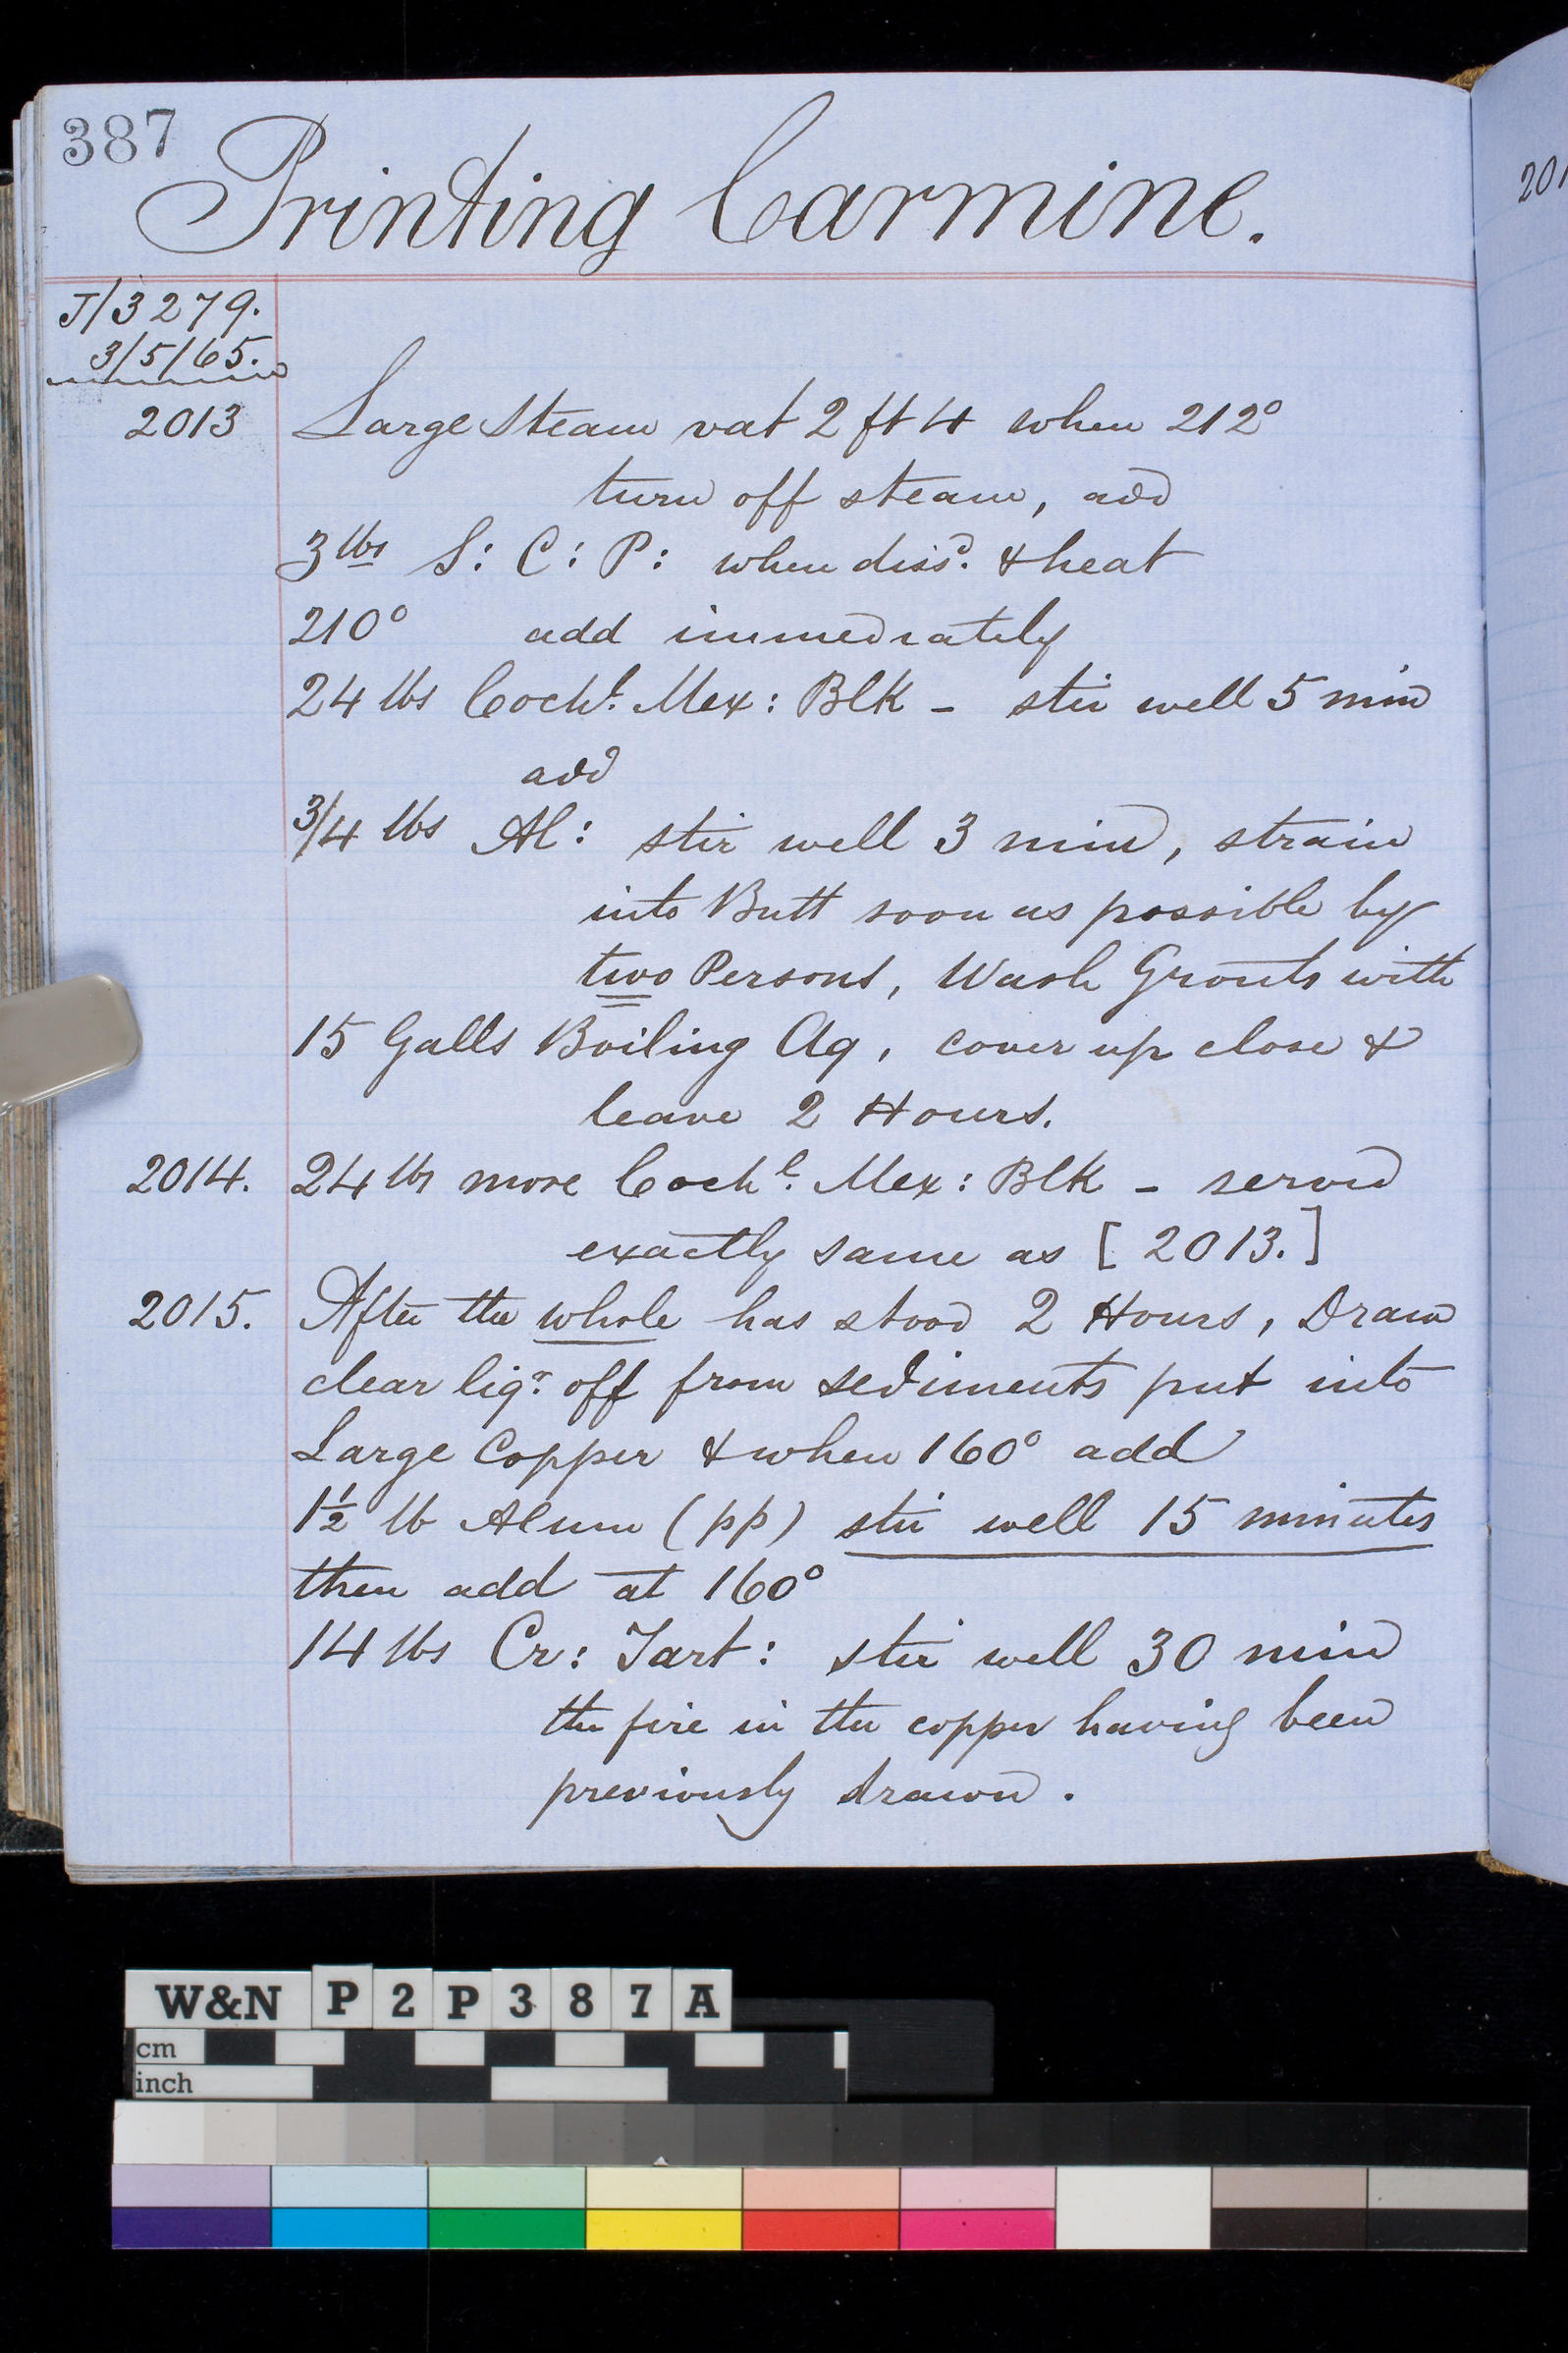 387
Printing Carmine.
J/3279.
3/5/65.
2013 Large Steam vat 2 ft 4 when 212°
turn off steam, add
3 lbs S: C: P: when dissd. & heat
210° add immediately
24 lbs Cochl. Mex: Blk - stir well 5 min
add
3/4 lbs Al: stir well 3 min, strain
into Butt soon as possible by
two Persons, Wash Grouts with
15 Galls Boiling Aq, cover up close &
leave 2 Hours.
2014. 24 lbs more Cochl. Mex: Blk - served
exactly same as [2013.]
2015. After the whole has stood 2 Hours, Draw
clear liqr. off from sediments put into
Large Copper & when 160° add
1½ lb Alum (pp) stir well 15 minutes
then add at 160°
14 lbs Cr: Tart: stir well 30 min
the fire in the copper having been
previously drawn.
201
W&N P2P387A
cm
inch